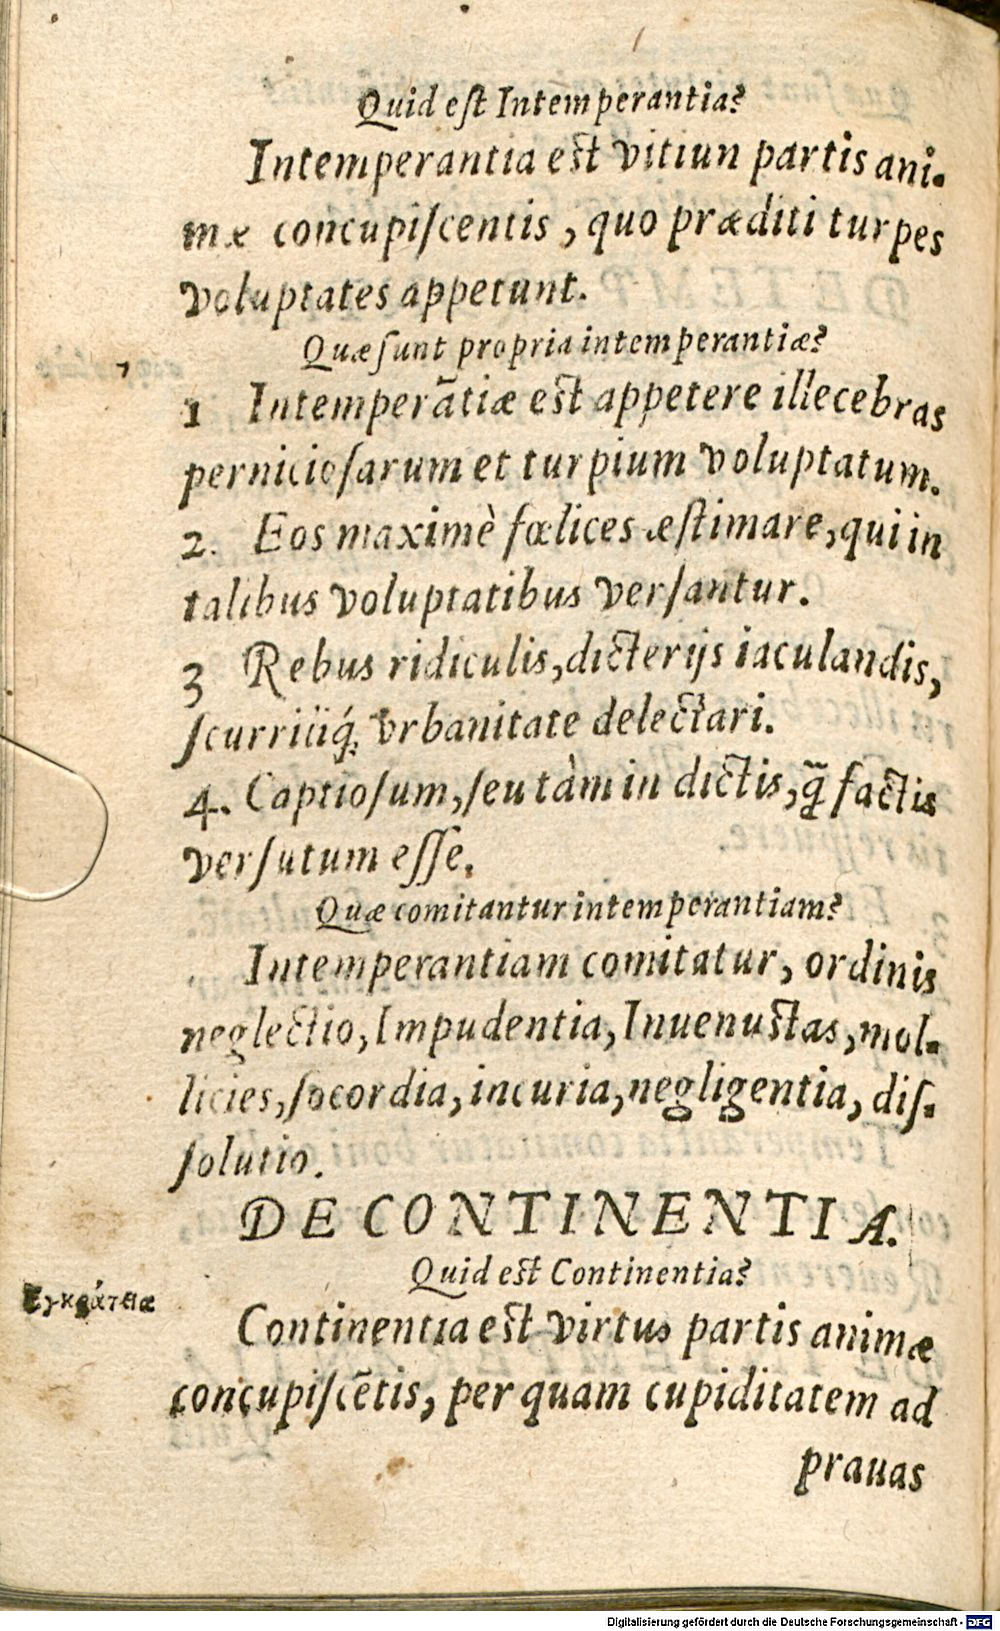 Quid eſt Intemperantia?
Intemperantia eſt vitiun partis ani-
mæ concupiſcentis, quo præditi turpes
voluptates appetunt.
Quæ ſunt propria intemperantiæ?
1 Intemperãtiæ eſt appetere illecebras
pernicioſarum et turpium voluptatum.
2. Eos maximè fœlices æſtimare, qui in
talibus voluptatibus verſantur.
3 Rebus ridiculis, dicterijs iaculandis,
ſcurriliq́; vrbanitate delectari.
4. Captioſum, ſeu tàm in dictis, q̃ factis
verſutum eſſe.
Quæ comitantur intemperantiam?
Intemperantiam comitatur, ordinis
neglectio, Impudentia, Inuenuſtas, mol-
licies, ſocordia, incuria, negligentia, diſ-
ſolutio.
DE CONTINENTIA.
Quid eſt Continentia?
Εγκράτεια
Continentia eſt virtus partis animæ
concupiſcẽtis, per quam cupiditatem ad
prauas
Digitalisierung gefördert durch die Deutsche Forschungsgemeinschaft - DFG